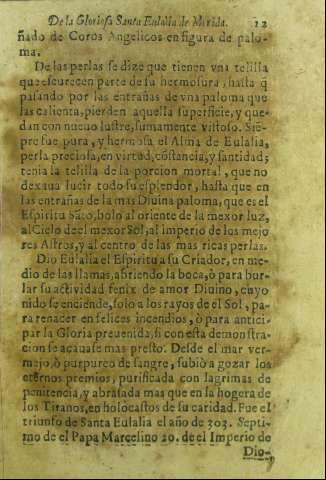 De la Gloriosa Santa Eulalia de Merida. 12
ñado de Coros Angelicos en figura de palo-
ma.
De las perlas se dize que tienen vna telilla
que escurecen parte de su hermosura, hasta q̃
pasando por las entrañas de vna paloma que
las calienta, pierden aquella superficie, y que-
dan con nueuo lustre, sumamente vistoso. Siẽ-
pre fue pura, y hermosa el Alma de Eulalia,
perla preciosa, en virtud, cõstancia, y santidad;
tenia la telilla de la porcion mortal, que no
dexaua lucir todo su esplendor, hasta que en
las entrañas de la mas Diuina paloma, que es el
Espiritu Sãto, bolo al oriente de la mexor luz,
al Cielo de el mexor Sol, al imperio de los mejo
res Astros, y al centro de las mas ricas perlas.
Dio Eulalia el Espiritu a su Criador, en me-
dio de las llamas, abriendo la boca, ò para bur-
lar su actividad fenix de amor Diuino, cuyo
nido se enciende, solo a los rayos de el Sol, pa-
ra renacer en felices incendios, ò para antici-
par la Gloria preuenida, si con esta demonstra-
cion se acauase mas presto. Desde el mar ver-
mejo, ò purpureo de sangre, subiò a gozar los
eternos premios, purificada con lagrimas de
penitencia, y abrasada mas que en la hogera de
los Tiranos, en holocastos de su caridad. Fue el
triunfo de Santa Eulalia el año de 303. Septi-
mo de el Papa Marcelino 20. de el Imperio de
Dio-